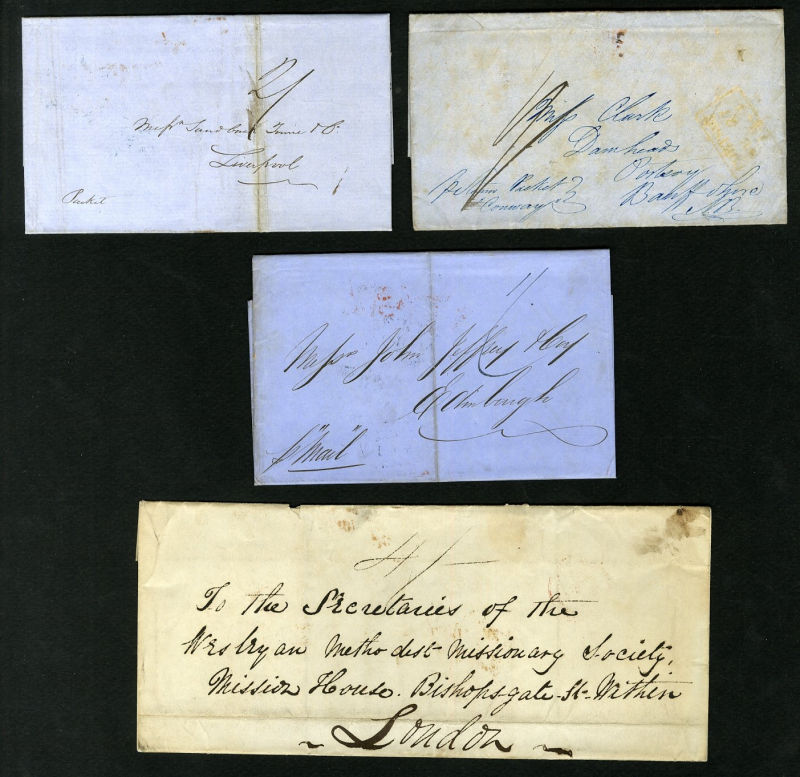 2/
Messrs Sandbach Tinne & Co.
Liverpool
Packet
1/
Miss Clark
Damheads
Portsoy
Banff Shire
N.B.
Steam Packet
Conway
1/
Messrs John Jeffrey & Coy
Edinburgh
p "Mail"
4/-
To the Secretaries of the
Wesleyan Methodist Missionary Society,
Mission House. Bishopsgate St. Within
London